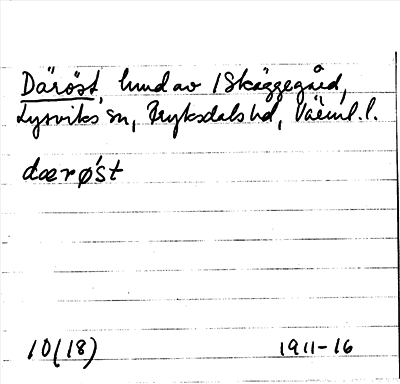 Däröst, hmd av 1 Skäggegård,
Lysviks sn, Fryksdals hd, Värml. l.
dærø´st
10(18) 1911-16